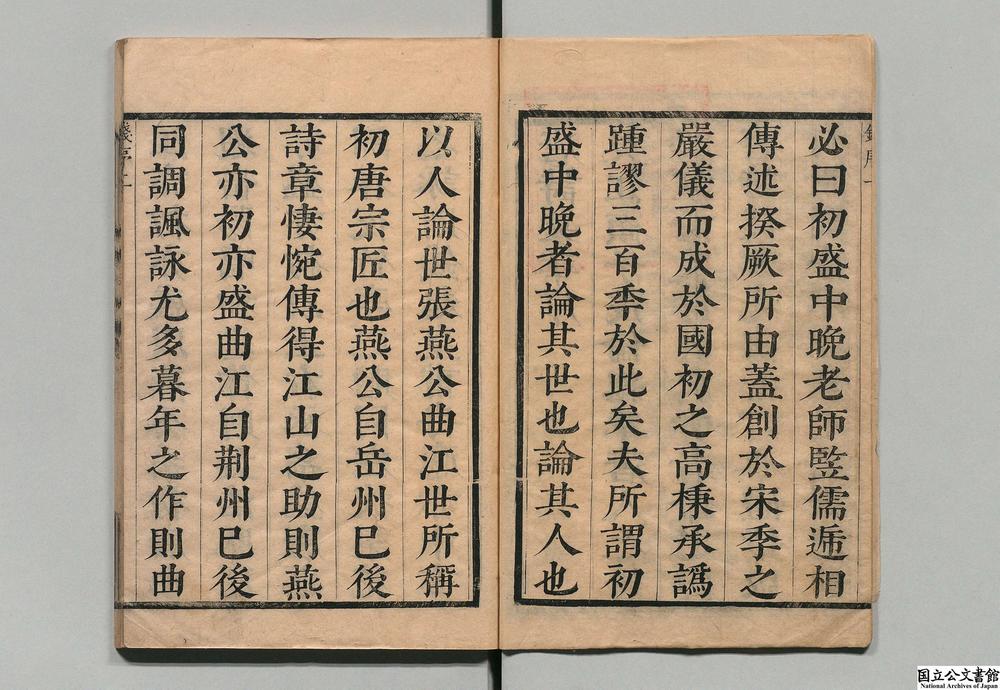 必曰初盛中晚老師竪儒遞相
傳述揆厥所由蓋創於宋季之
嚴儀而成於國初之高棅承譌
踵謬三百秊於此矣夫所謂初
盛中晚者論其世也論其人也
以人論世張燕公曲江世所稱
初唐宗匠也燕公自岳州已後
詩章悽惋傳得江山之助則燕
公亦初亦盛曲江自荆州已後
同調諷詠尤多暮年之作則曲
国立公文書館
National Archives of Japan